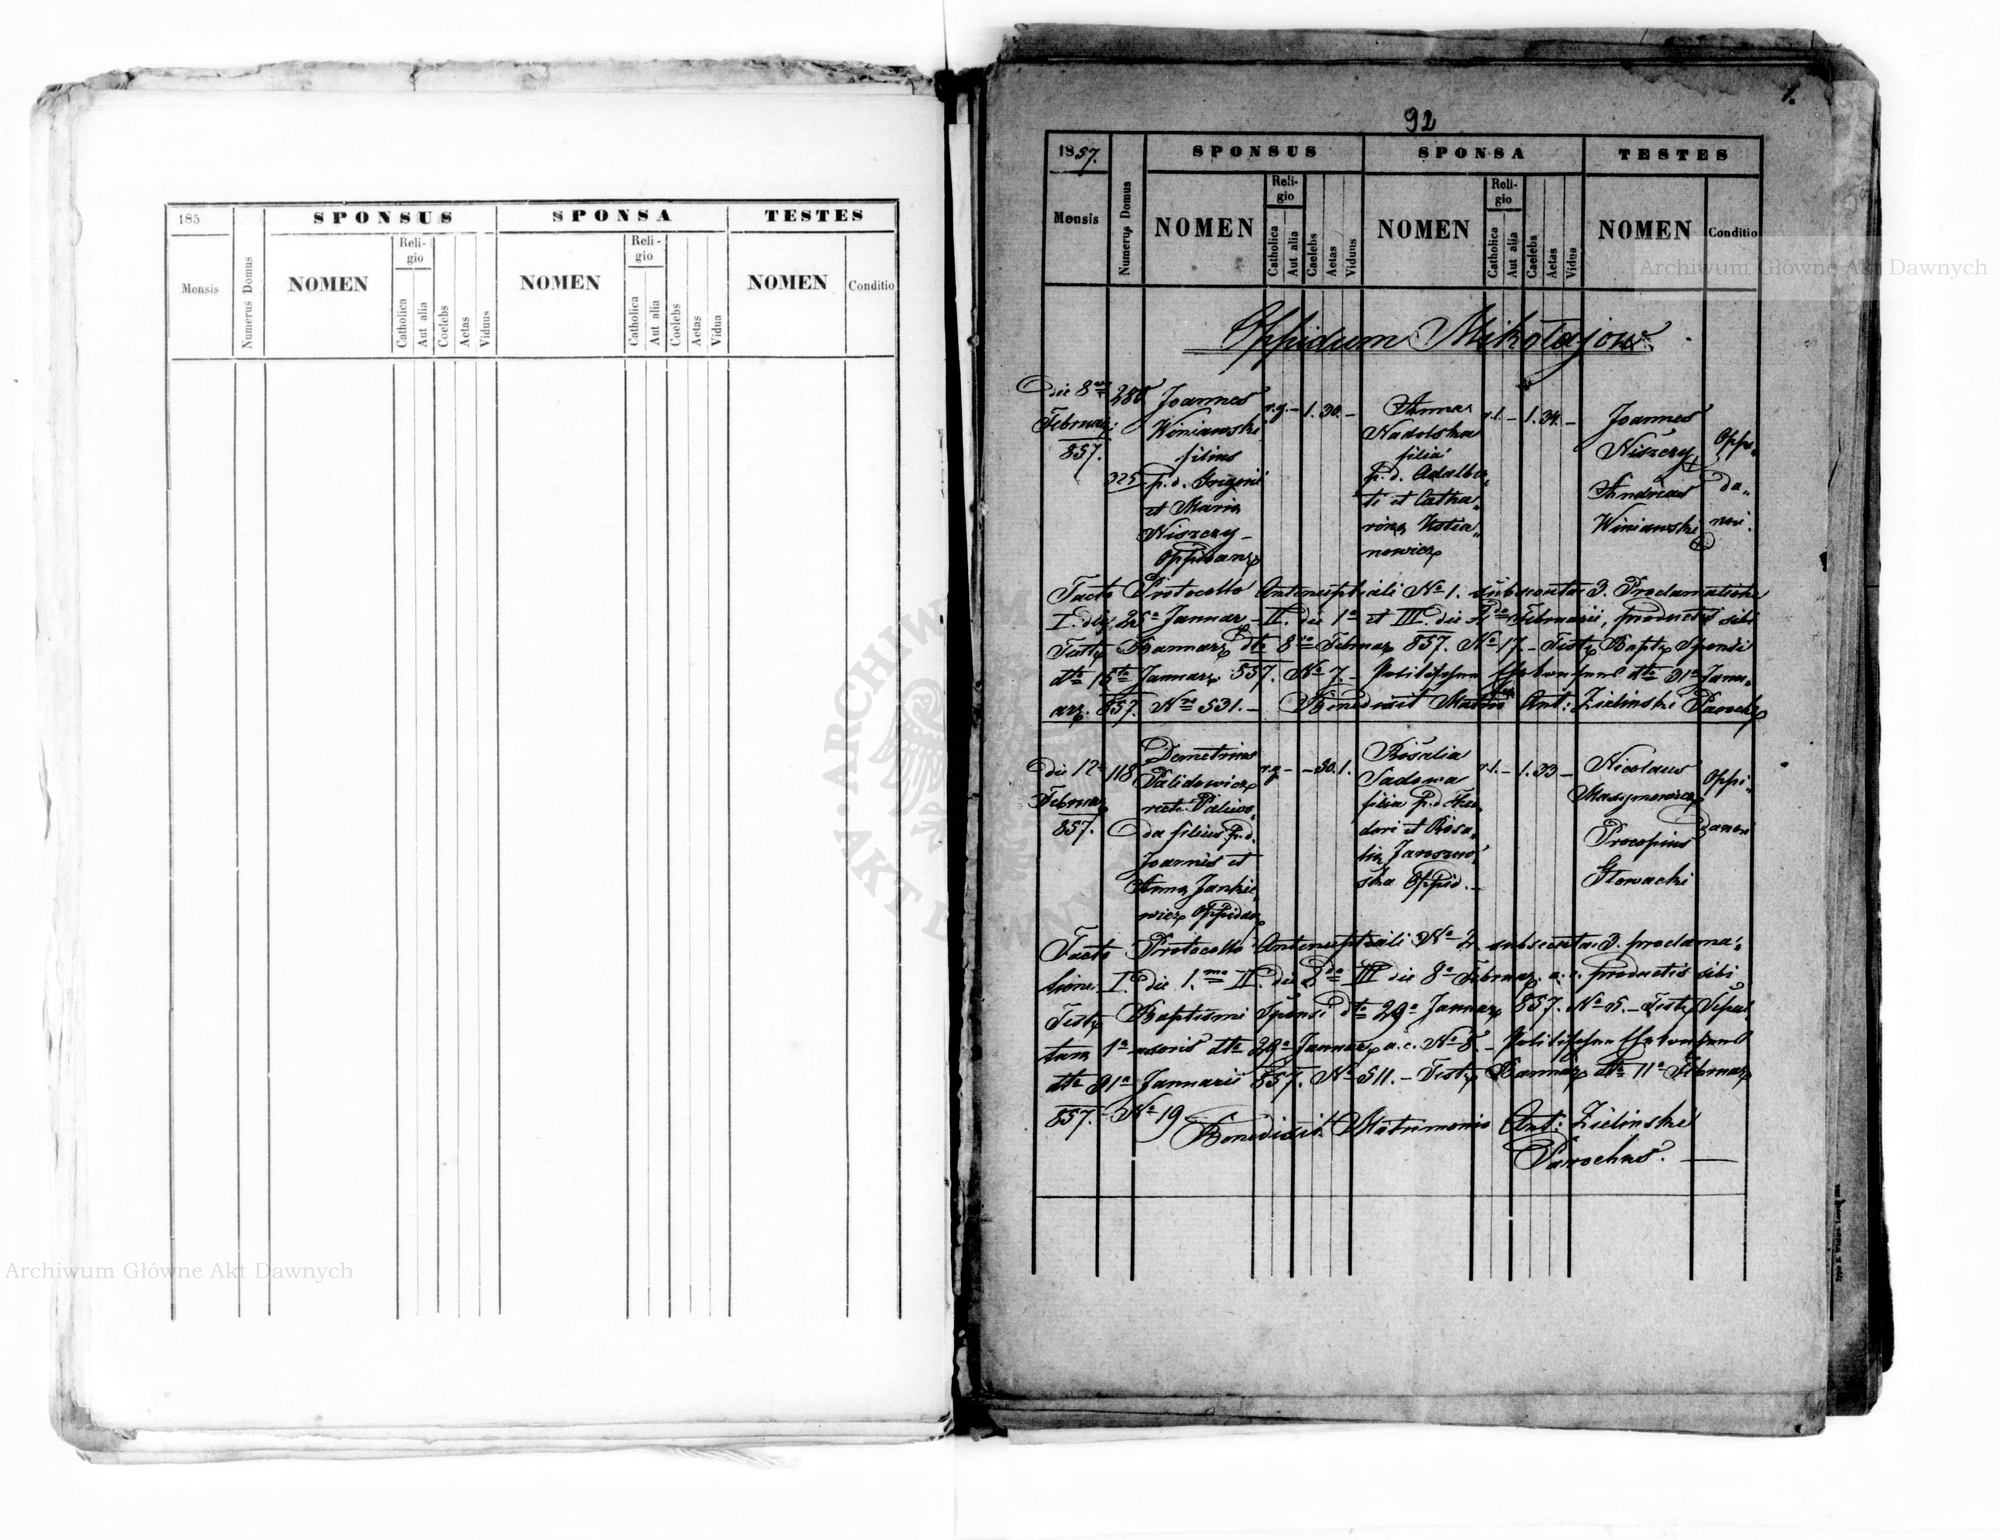 185
SPONSUS
SPONSA
TESTES
Mensis
Numerus Domus
NOMEN
Reli-
gio
Catholica
Aut alia
Coelebs
Aetas
Viduus
NOMEN
Reli-
gio
Catholica
Aut alia
Coelebs
Aetas
Vidua
NOMEN
Conditio
1.
92
1857.
SPONSUS
SPONSA
TESTES
Mensis
Numerus Domus
NOMEN
Reli-
gio
Catholica
Aut alia
Caelebs
Aetas
Viduus
NOMEN
Reli-
gio
Catholica
Aut alia
Caelebs
Aetas
Vidua
NOMEN
Conditio
Oppidum Mikołajow
Die 8va
Februar
857.
280
325
Joannes
Winiawski
filius
p. d. Grigorii
et Maria
Niszczy
Oppidan
r.g. – 1. 30. –
Anna
Nadolska
filia
p. d. Adalber
ti et Catha
rina Kostia
nowicz
r.l. – 1. 34. –
Joannes
Niszczy +
Andreas
Winiawski +
Oppi
da
nei.
Facto Protocollo Antenuptiali No 1. subsecuta 3. Proclamatione
I. die 25a Januar – II. die 1a et III. die Februarii, productis sibi
Test Bannar dto 8va Februar 857. No 17. – Test Bapt Sponsi
dto 15ta Januar 857. No 7. – dto 31a Janu
ar. 857. No 531. – Benedixit Matrim Ant: Zielinski Paroch
Die 12a
Februar
857.
118
Demetrius
Palidowicz
recte Paliwo
da filius p. d.
Joannis et
Anna Jankie
wicz Oppidan
r.g – – 30. 1.
Rosalia
Sadowa
filia p. d Theo
dori et Rosa
lia Jaroszew
ska Oppid. –
r.l. – 1. 33 –
Nicolaus
Maxymowicz
Procopius
Słowacki
Oppi
danei
Facto Protocollo Antenuptiali No 2. subsecuta 3. proclama
tione I. die 1.ma II. die 2da III die 8a Februar. a. c. productis sibi
Test Baptismi Sponsi dto 29a Januar 857. No 5. – Test Sepul
tura 1a uxoris dto 29a Januar a. c. No 8. –
dto 31a Januarii 857. No 511. – Test Bannar dto 11a Februar
857. No 19
Benedixit Matrimonio Ant: Zielinski
Parochus.
Archiwum Główne Akt Dawnych
Archiwum Główne Akt Dawnych
ARCHIWUM
AKT DAWNYCH